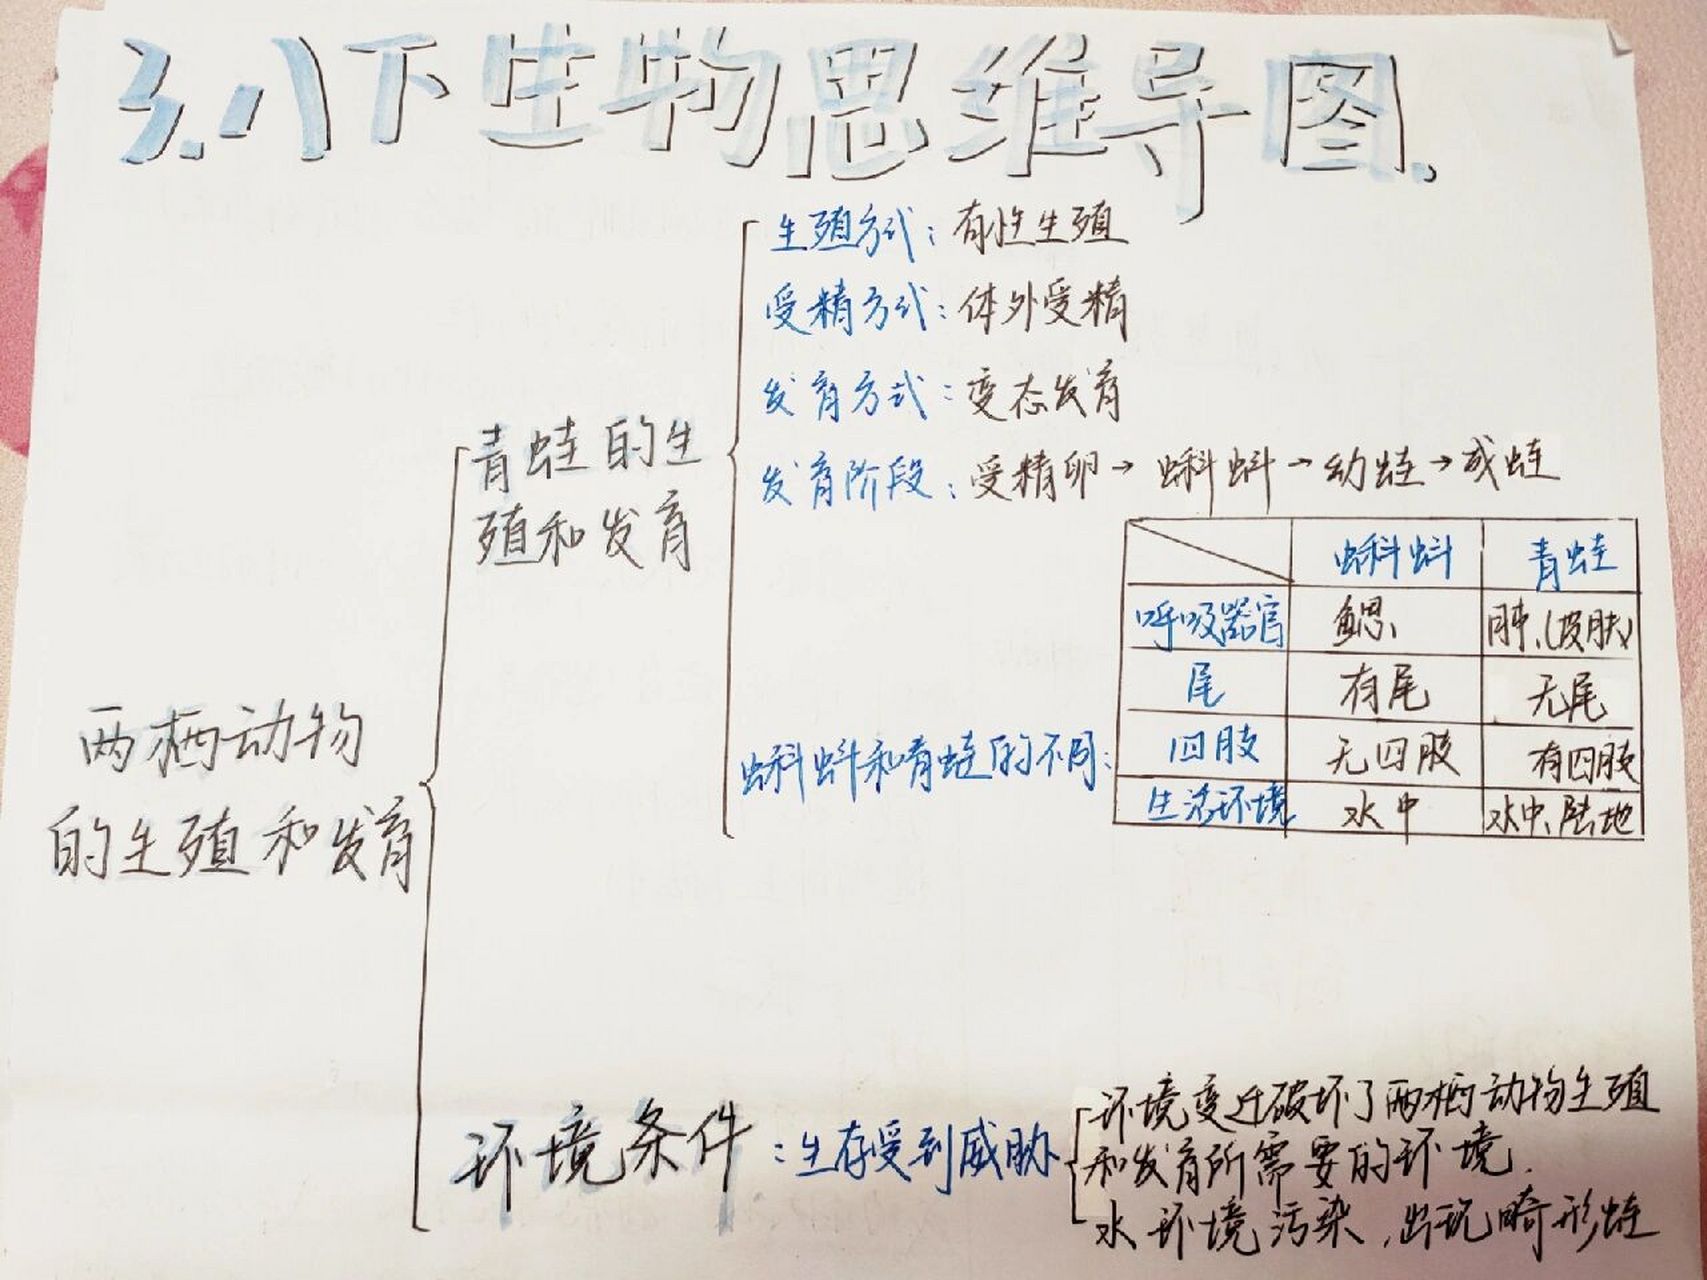 3.八下生物思维导图.
生殖方式：有性生殖
受精方式：体外受精
发育方式：变态发育
发育阶段：受精卵→蝌蚪→幼蛙→成蛙
青蛙的生
殖和发育
蝌蚪 青蛙
呼吸器官 鳃 肺、(皮肤)
尾 有尾 无尾
四肢 无四肢 有四肢
生活环境 水中 水中、陆地
蝌蚪和青蛙的不同：
两栖动物
的生殖和发育
环境条件：生存受到威胁
环境变迁破坏了两栖动物生殖
和发育所需要的环境.
水环境污染，出现畸形蛙